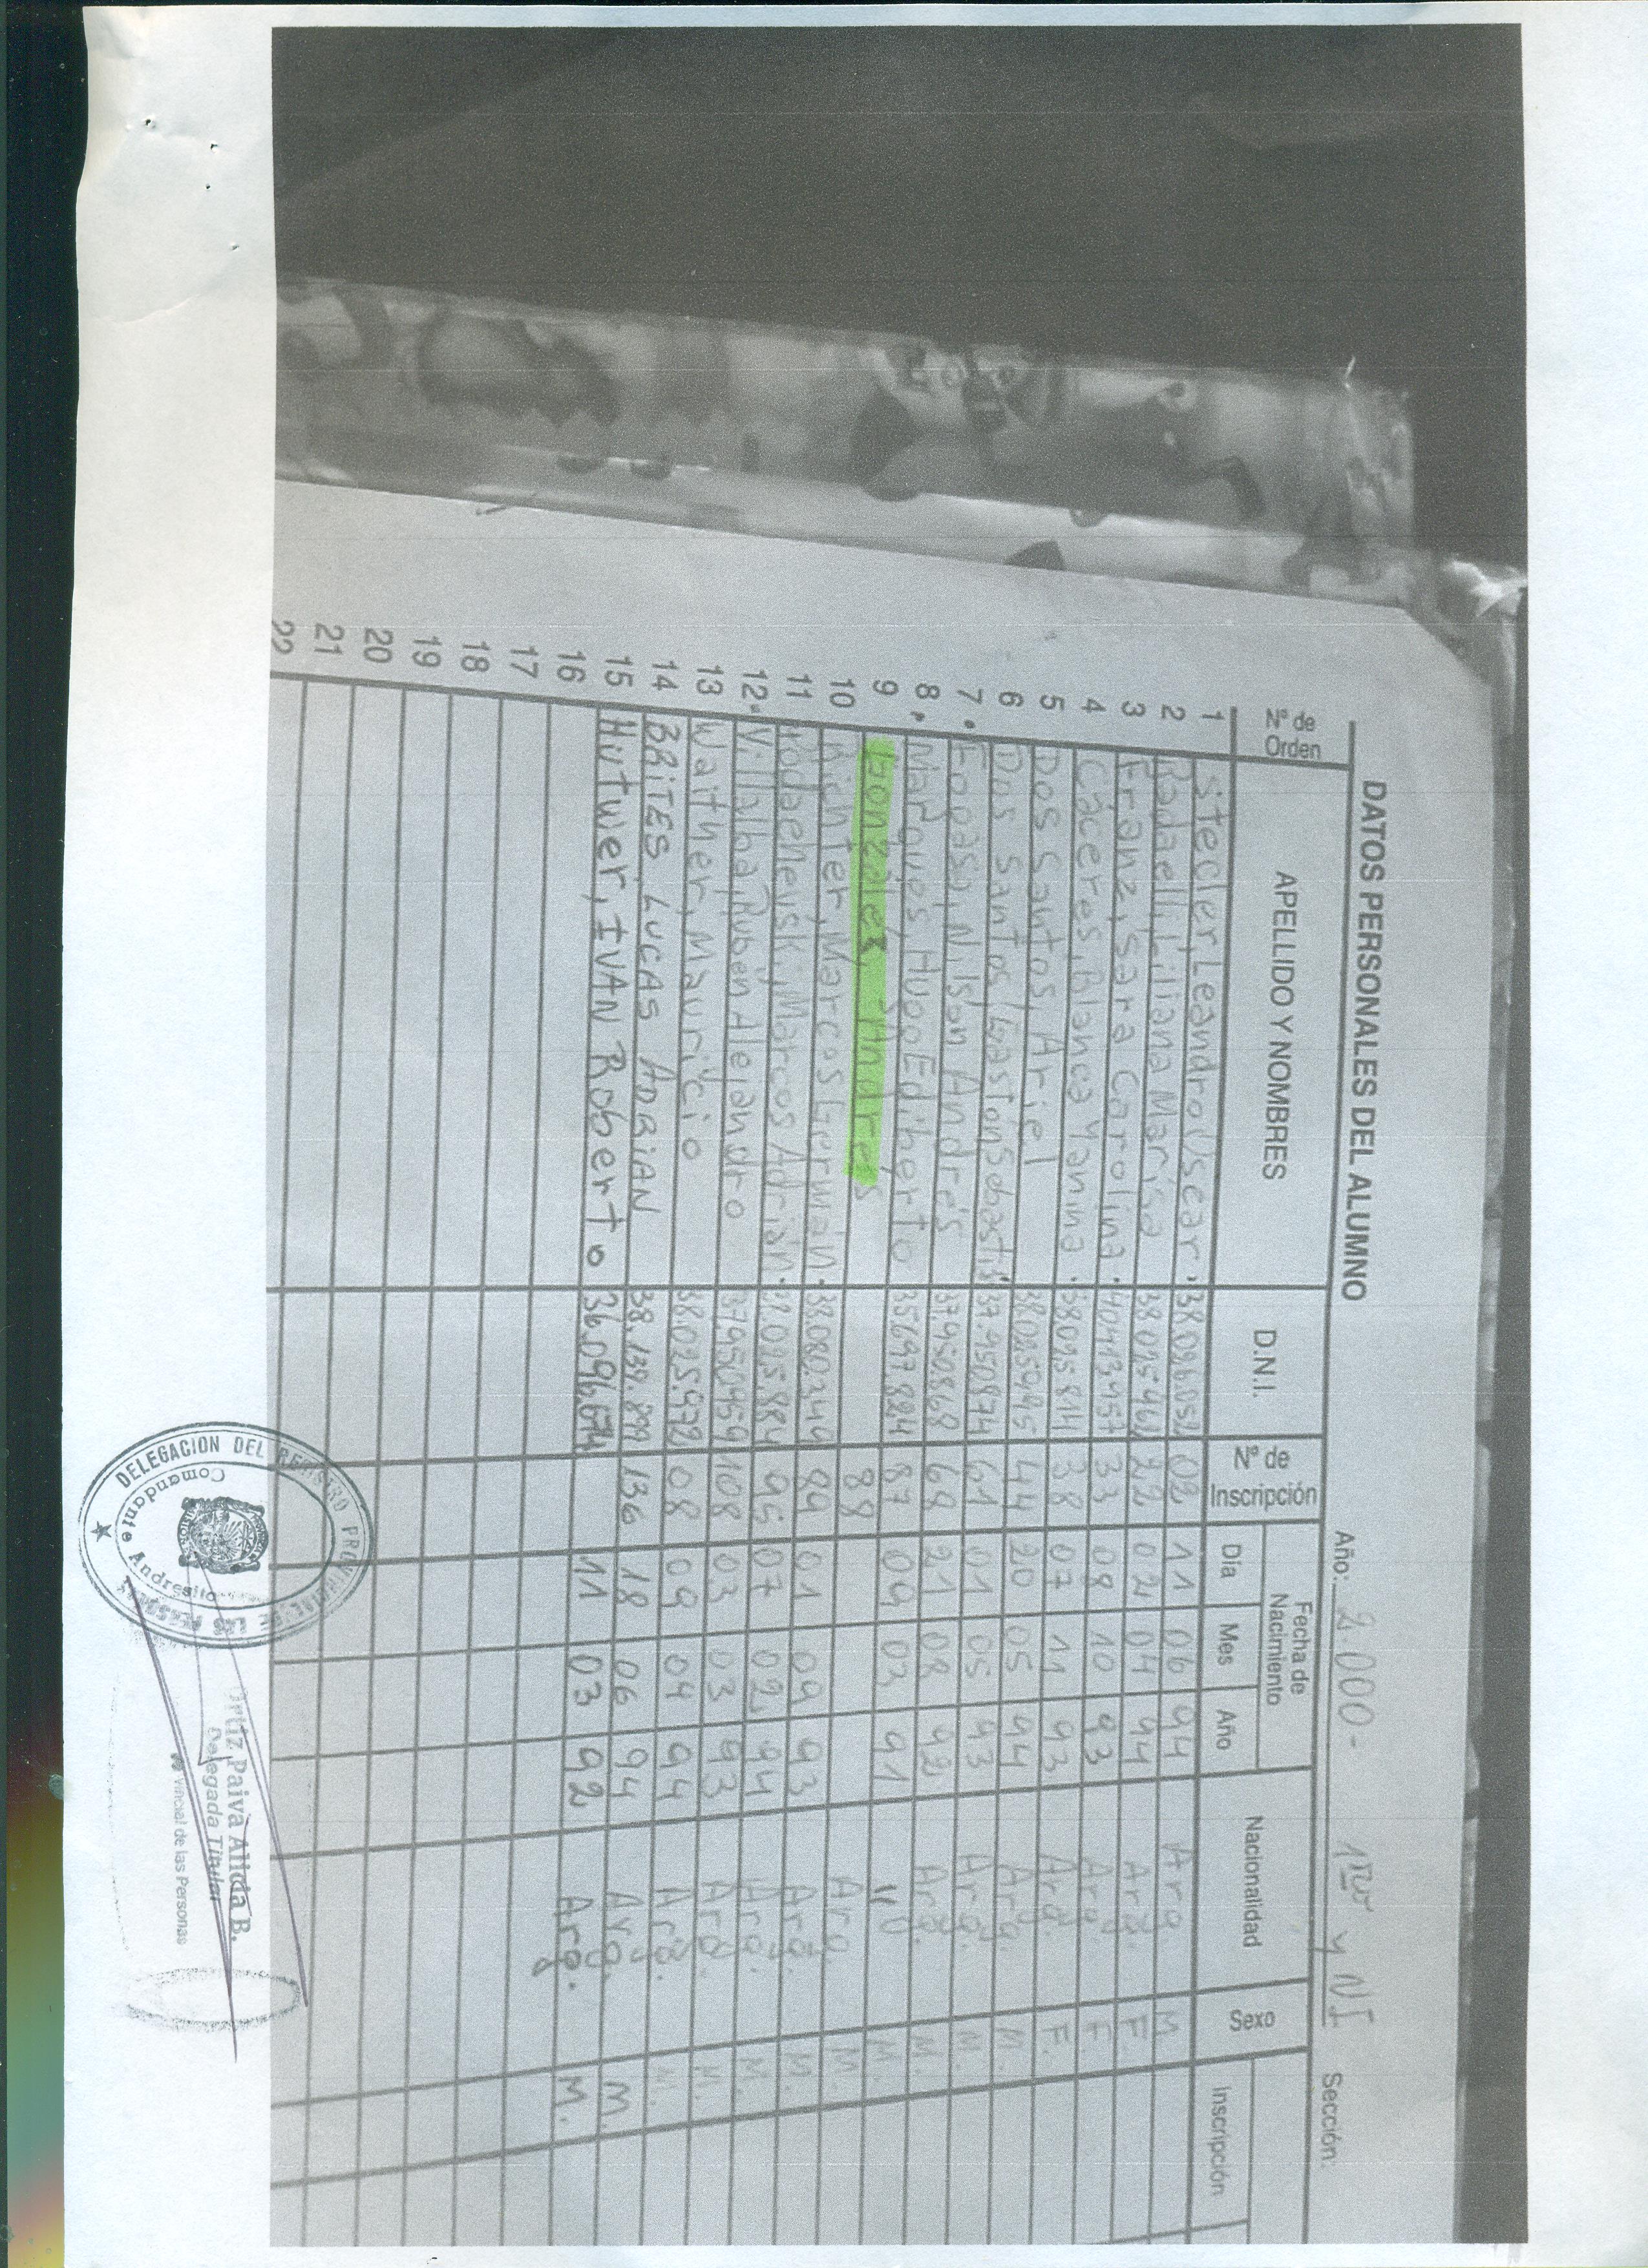 DATOS PERSONALES DEL ALUMNO Año: 2.000- 1ro y NI Sección:
Nº de Orden APELLIDO Y NOMBRES D.N.I. Nº de Inscripción Fecha de Nacimiento Día Mes Año Nacionalidad Sexo Inscripción
1 Stecler, Leandro Osear. 38.096.052 02 11 06 94 Arg. M
2 Radaelli, Liliana Marisa 38.095.462 22 02 04 94 Arg. F.
3 Franz, Sara Carolina. 33 08 10 93 Arg. F.
4 Cáceres, Blanca Yanina. 38.095.814 38 07 11 93 Arg. F.
5 Dos Santos, Ariel 44 20 05 94 Arg. M.
6 Dos Santos, Gastón Sebasti 37.950.874 61 01 05 93 Arg. M.
7. Fogasa, Nilson Andrés 37.950.868 69 21 08 92 Arg. M.
8. Marques, Hugo Ediberto 35.697.824 87 09 03 91 " M.
9 Gonzalez, Andres 88 Arg. M.
10 Richter, Marcos Germán. 38.080.344 94 01 09 93 Arg. M.
11 Marcos Adrián. 95 07 02 94 Arg. M.
12. Villalba, Rubén Alejandro 37.950.959 108 03 03 93 Arg. M.
13 Waither, Mauricio 38.035.972 08 09 04 94 Arg. M.
14 BRITES, LUCAS ADRIAN 38.139.899 136 18 06 94 Arg. M.
15 Hutwer, IVAN Roberto 36.096.674 11 03 92 Arg. M.
16
17
18
19
20
21
22
DELEGACION DEL REGISTRO PROVINCIAL DE LAS PERSONAS
Comandante Andresito
Ortiz Paiva Alida B.
Delegada Titular
vincial de las Personas